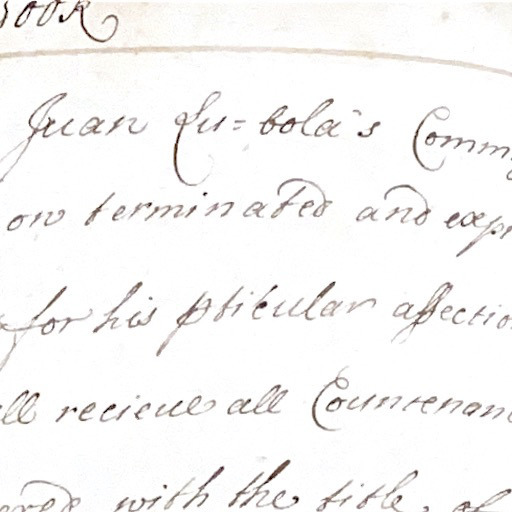 Book
Juan Lu=bola's Comm
on terminated and exp
for his pticular affectio
ll recieue all Countenan
ered with the title of